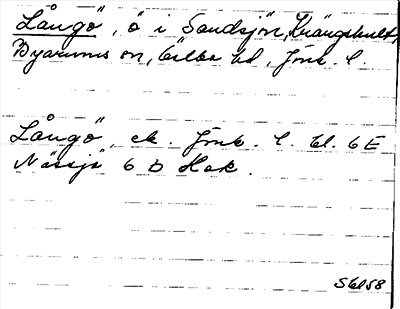 Långö, ö i Sandsjön, Krängshult,
Byarums sn, Östbo hd, Jönk. l.
Långö, ek. Jönk. l. bl. 6E
Nässjö 6 D Hok.
Sbl58